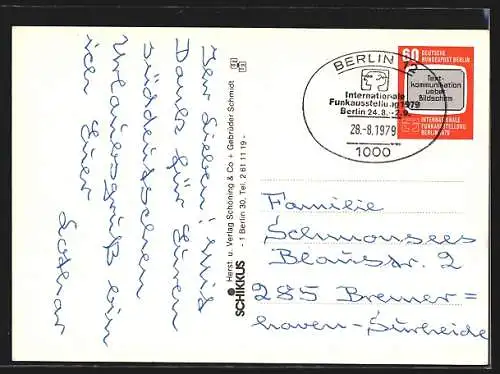 Ihr Lieben! Mit
Dank für Euren
süddeutschen
Urlaubsgruß bin
ich Euer
Lothar
Herst. u. Verlag Schöning & Co + Gebrüder Schmidt
SCHIKKUS - 1 Berlin 30, Tel. 2 61 11 19 -
BERLIN 12
Internationale
Funkausstellung 1979
Berlin 24.8.-2.9.
28.-8.1979
1000
60 DEUTSCHE
BUNDESPOST BERLIN
Text-
kommunikation
ueber
Bildschirm
INTERNATIONALE
FUNKAUSSTELLUNG
BERLIN 1979
Familie
Schmonsees
Blaustr. 2
285 Bremer=
haven-Surheide